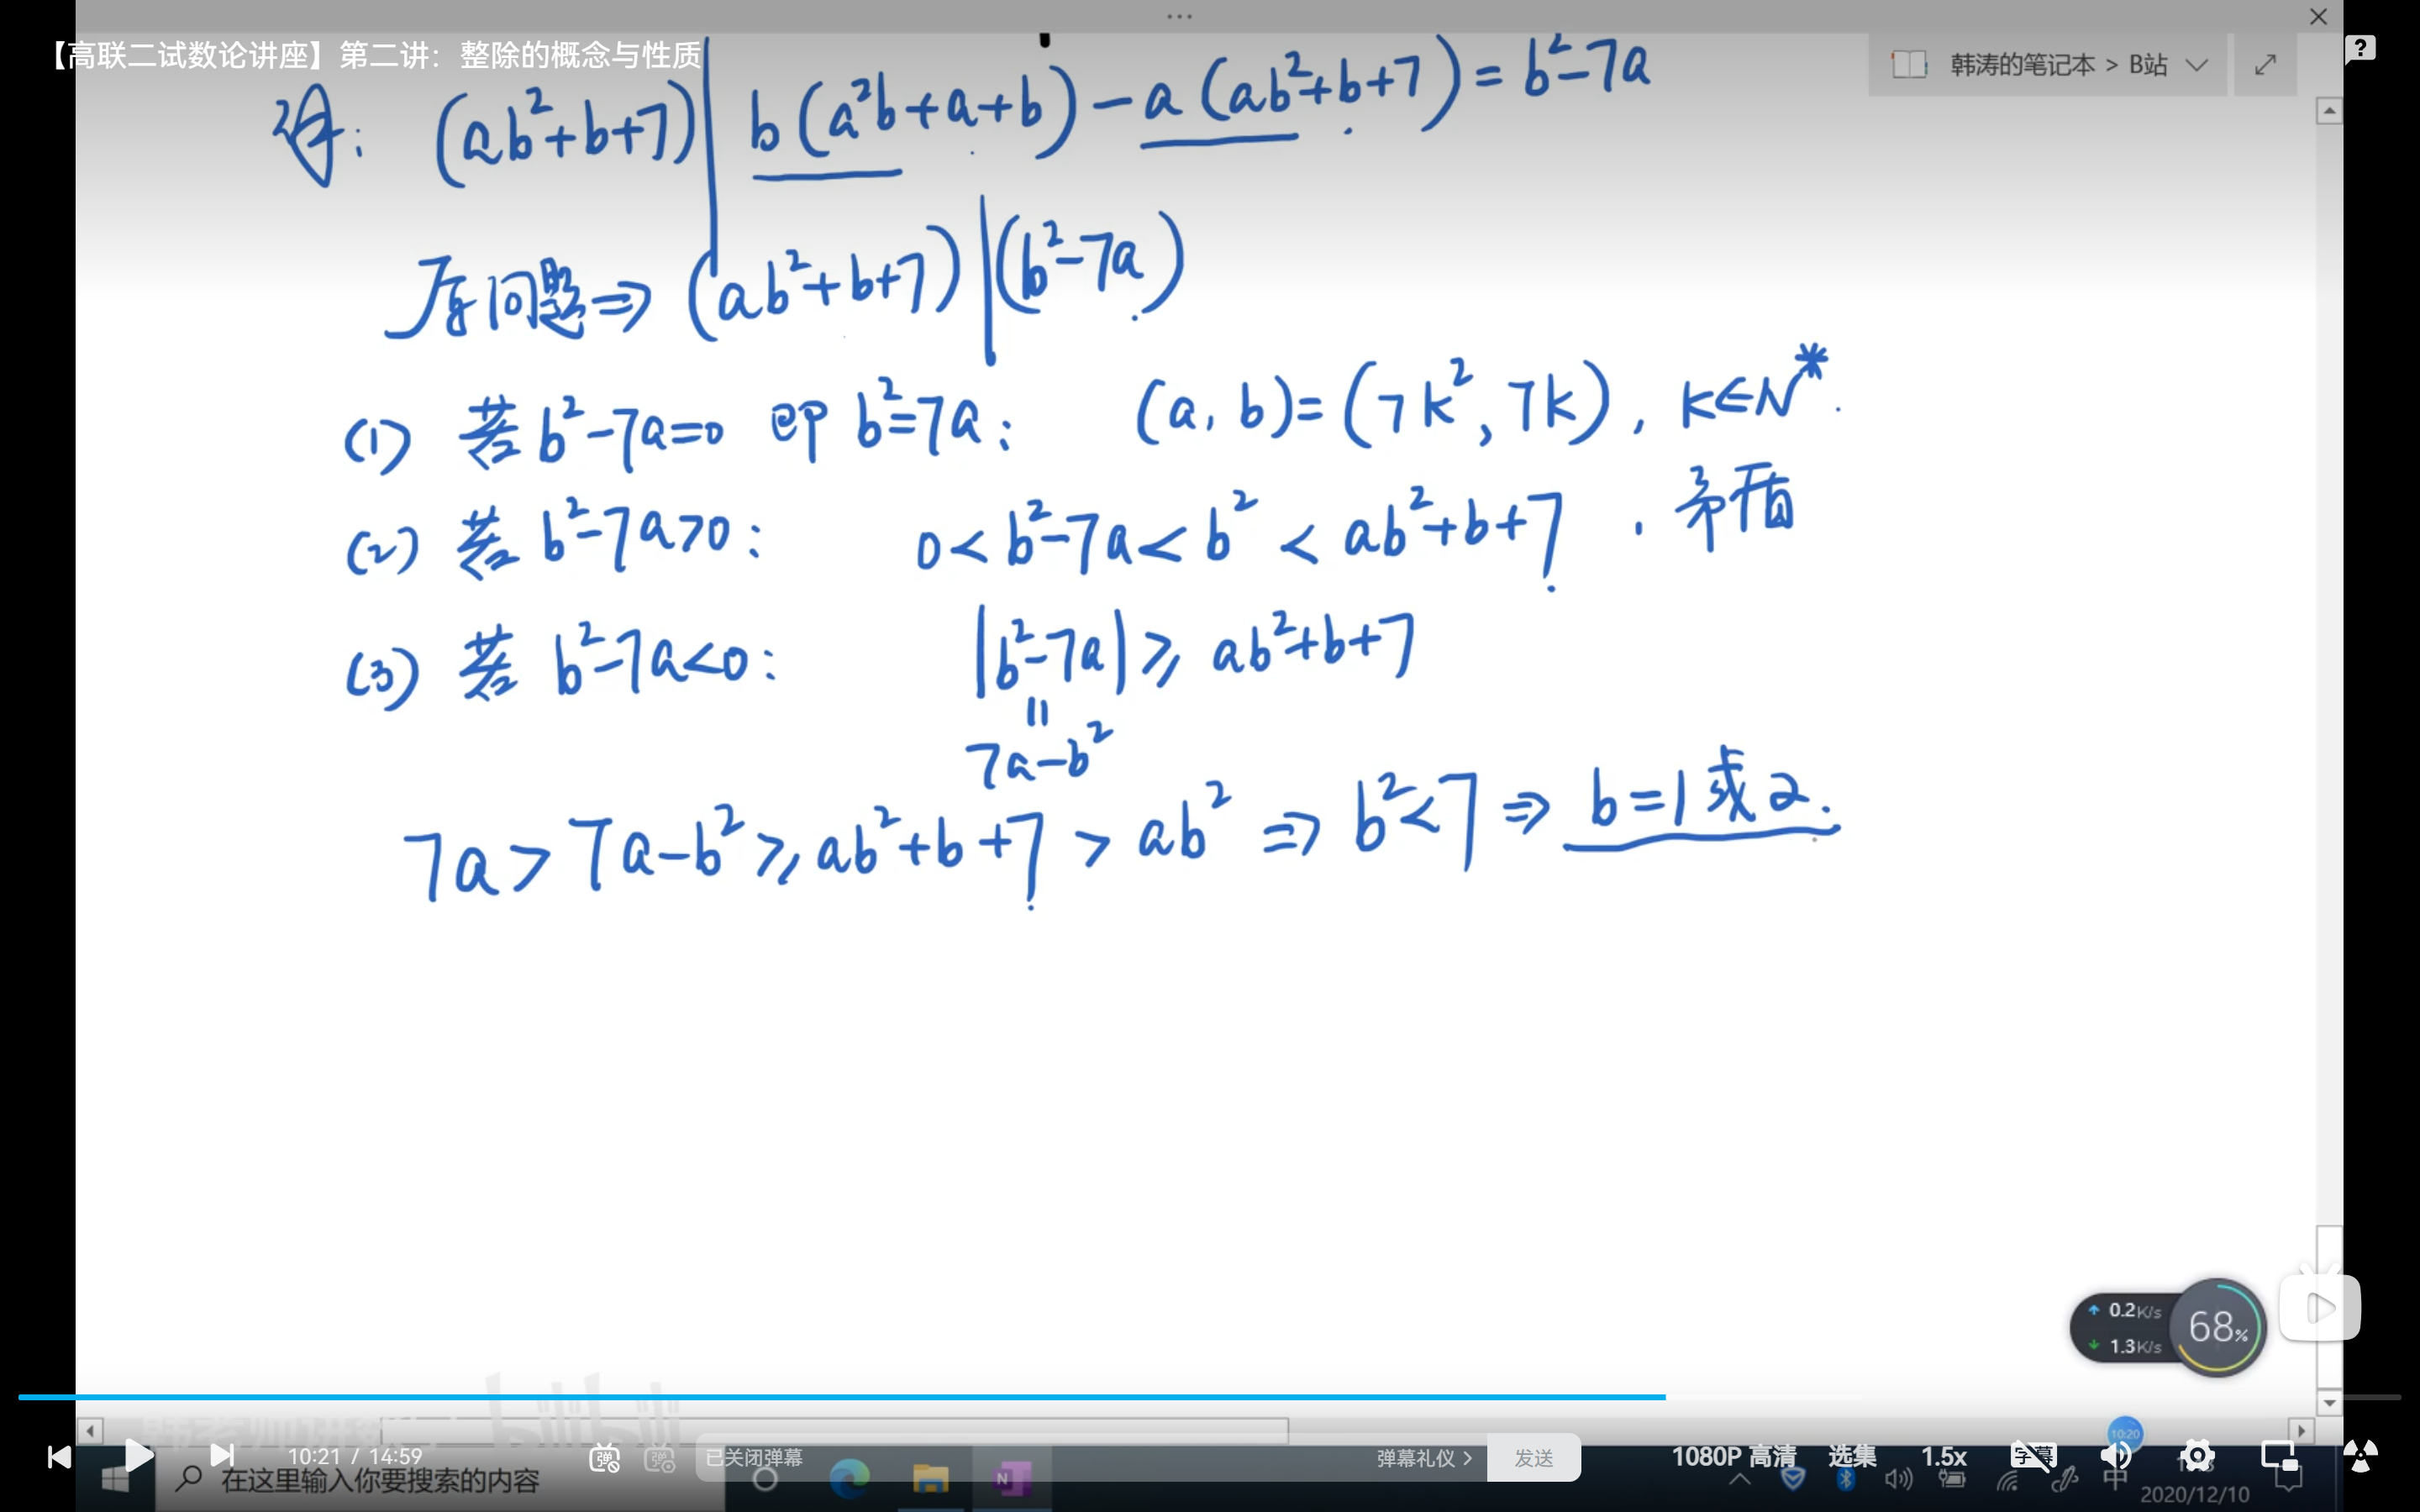 【高联二试数论讲座】第二讲：整除的概念与性质
韩涛的笔记本 > B站
译: (ab²+b+7) | b(a²b+a+b)-a(ab²+b+7)=b²-7a
原问题⇒(ab²+b+7)|(b²-7a)
(1) 若 b²-7a=0 即 b²=7a: (a, b)=(7k², 7k), k∈N*.
(2) 若 b²-7a>0: 0<b²-7a<b²<ab²+b+7. 矛盾
(3) 若 b²-7a<0: |b²-7a|≥ab²+b+7
=
7a-b²
7a>7a-b²≥ab²+b+7>ab²⇒b²<7⇒b=1或2.
0.2K/s
1.3K/s
68%
10:20
10:21 / 14:59
弹
已关闭弹幕
弹幕礼仪 >
发送
1080P 高清
选集
1.5x
字幕
在这里输入你要搜索的内容
中
2020/12/10